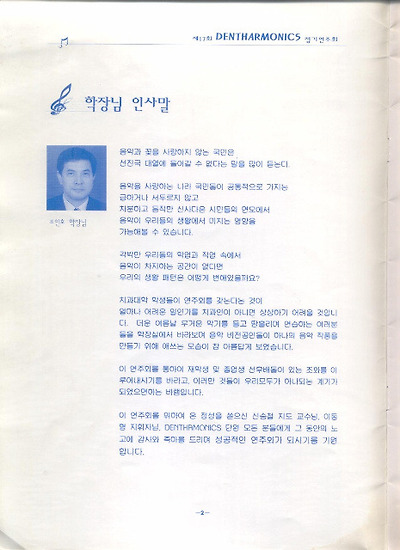 제13회 DENTHARMONICS 정기연주회
학장님 인사말
음악과 꽃을 사랑하지 않는 국민은
선진국 대열에 들어갈 수 없다는 말을 많이 듣는다.
음악을 사랑하는 나라 국민들이 공통적으로 가지는
급하거나 서두르지 않고
차분하고 동적인 신사다운 시민들의 면모에서
음악이 우리들의 생활에서 미치는 영향을
가늠해볼 수 있습니다.
각박한 우리들의 학업과 직업 속에서
음악이 차지하는 공간이 없다면
우리의 생활 패턴은 어떻게 변해있을까요?
치과대학 학생들이 연주회를 갖는다는 것이
얼마나 어려운 일인가를 치과인이 아니면 상상하기 어려울 것입니
다. 더운 여름날 무거운 악기를 들고 땀흘리며 연습하는 여러분
들을 학장실에서 바라보며 음악 비전공인들이 하나의 음악 작품을
만들기 위해 애쓰는 모습이 참 아름답게 보였습니다.
이 연주회를 통하여 재학생 및 졸업생 선후배들이 있는 조화를 이
루어내시기를 바라고, 이러한 것들이 우리모두가 하나되는 계기가
되었으면하는 바램입니다.
이 연주회를 위하여 온 정성을 쏟으신 신승철 지도 교수님, 이동
형 지휘자님, DENTHARMONICS 단원 모든 분들에게 그 동안의 노
고에 감사와 축하를 드리며 성공적인 연주회가 되시기를 기원
합니다.
학장님
-2-